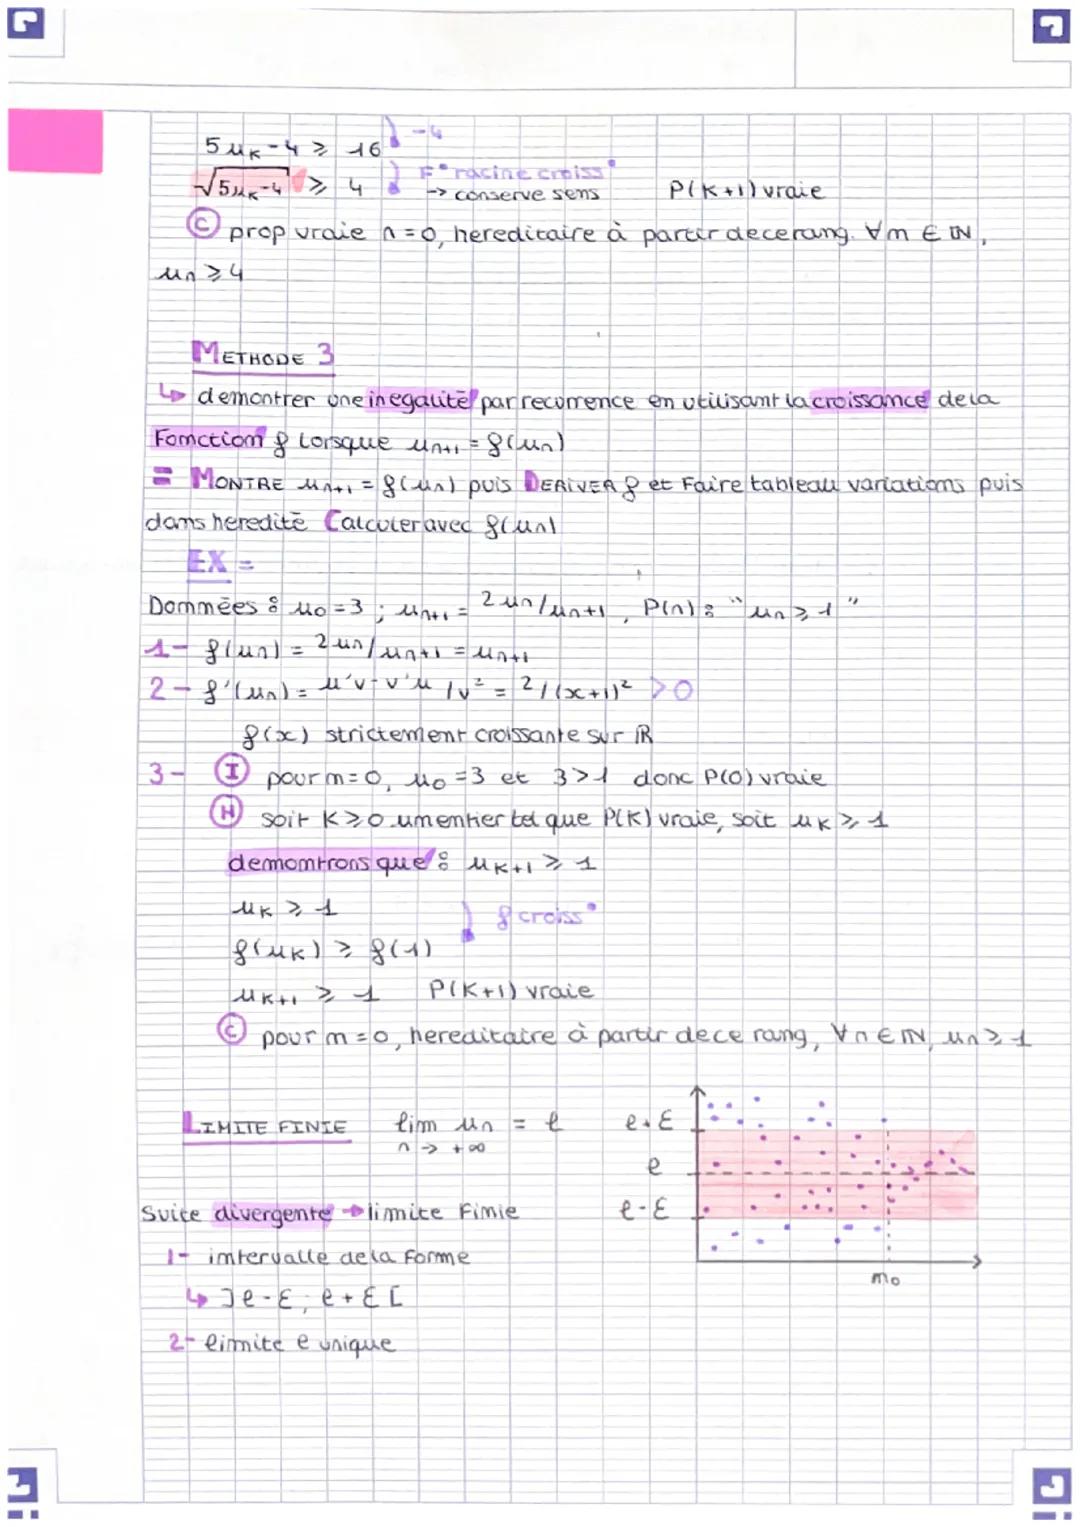 -4
5uK-4 ≥ 16
√5uK-4 ≥ 4 F° racine croiss°
-> conserve sens P(K+1) vraie
C prop vraie n=0, hereditaire à partir de ce rang. ∀m ∈ IN,
un ≥ 4
METHODE 3
↳ demontrer une inegalité par recurrence en utilisant la croissance de la
Fonction f lorsque un+1 = f(un)
= MONTRE un+1 = f(un) puis DERIVER f et Faire tableau variations puis
dans heredité Calculer avec f(un)
EX =
Données : u0 = 3 ; un+1 = 2un/un+1, P(n) : "un ≥ 1"
1- f(un) = 2un/un+1 = un+1
2- f'(un) = u'v-v'u /v² = 2/(x+1)² >0
f(x) strictement croissante sur IR
3- I pour m=0, u0 =3 et 3>1 donc P(0) vraie
H soit K≥0 un entier tel que P(K) vraie, soit uK ≥ 1
demontrons que : uK+1 ≥ 1
uK ≥ 1
f croiss°
f(uK) ≥ f(1)
uK+1 ≥ 1 P(K+1) vraie
C pour m=0, hereditaire à partir de ce rang, ∀n ∈ IN, un ≥ 1
LIMITE FINIE lim un = ℓ
n -> +∞
ℓ+ε
ℓ
ℓ-ε
m0
Suite divergente -> limite Finie
1- intervalle de la Forme
↳ ]ℓ-ε; ℓ+ε[
2- limite ℓ unique